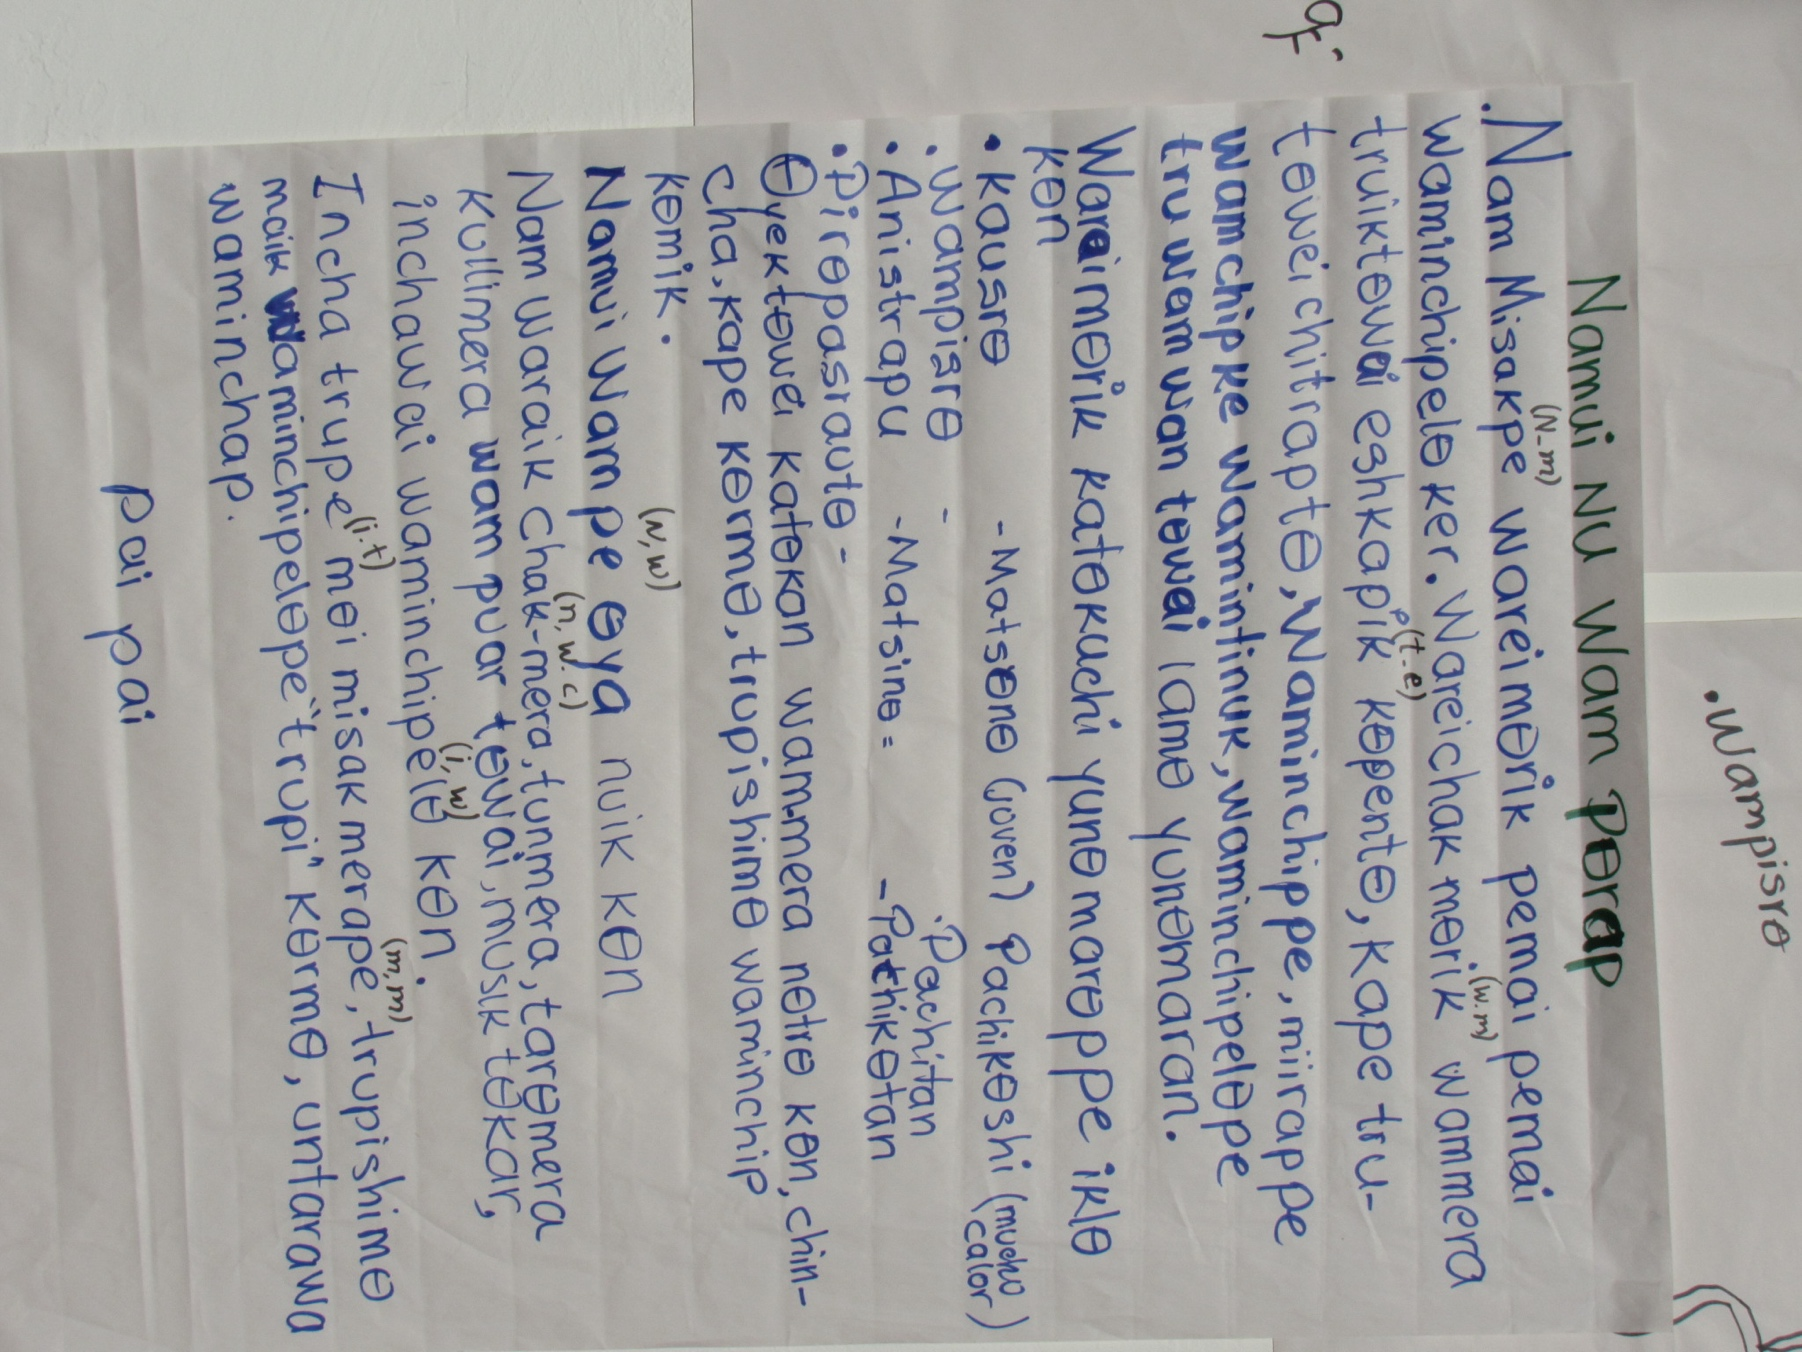 Namui Nu Wam pɵrap
(N-m)
.Nam Misakpe wareimɵrik pemai pemai
waminchipelɵ ker. Wareichak mɵrik wammera
(w.m)
truiktɵwai eshkapik kɵpentɵ, kape tru-
(t-e)
tɵwei chitraptɵ, waminchippe, mirappe
wamchipke wamintinuk, waminchipelɵpe
tru wam wan tɵwai lamɵ yunɵmaran.
Wareimɵrik katɵkuchi yunɵmarɵppe iklɵ
kɵn
• kausrɵ - Matsɵnɵ (joven) Pachikɵshi (mucho calor)
. wampisrɵ - . Pachitan
• Anistrapu - Matsinɵ = - Pachikɵtan
• Pirɵpasrautɵ -
Ɵyek tɵwei katɵkan wam-mera nɵtrɵ kɵn, chin-
cha, kape kɵrmɵ, trupishimɵ waminchip
kɵmik.
(N,w)
Namui wam pe ɵya nuik kɵn
(n,w.c)
Nam waraik chak-mera, tunmera, tarɵmera
kullimera wam puar tɵwai, musik tɵkar,
(i,w)
inchawai waminchipelɵ kɵn.
(i.t) (m,m)
Incha trupe mɵi misak merape, trupishimɵ
maik waminchipelɵpe "trupi" kɵrmɵ, untarawa
waminchap.
pai pai
.wampisrɵ